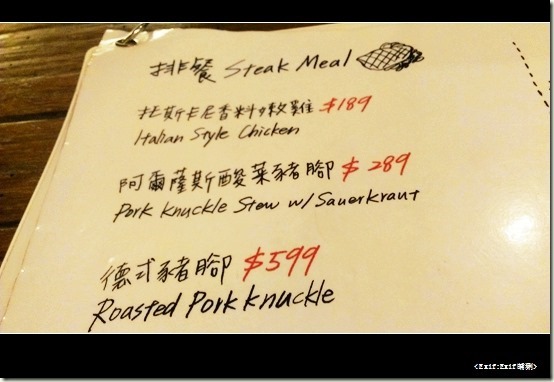 排餐 Steak Meal
托斯卡尼香料嫩雞 $189
Italian Style Chicken
阿爾薩斯酸菜豬腳 $289
Pork Knuckle Stew w/ Sauerkraut
德式豬腳 $599
Roasted Pork Knuckle